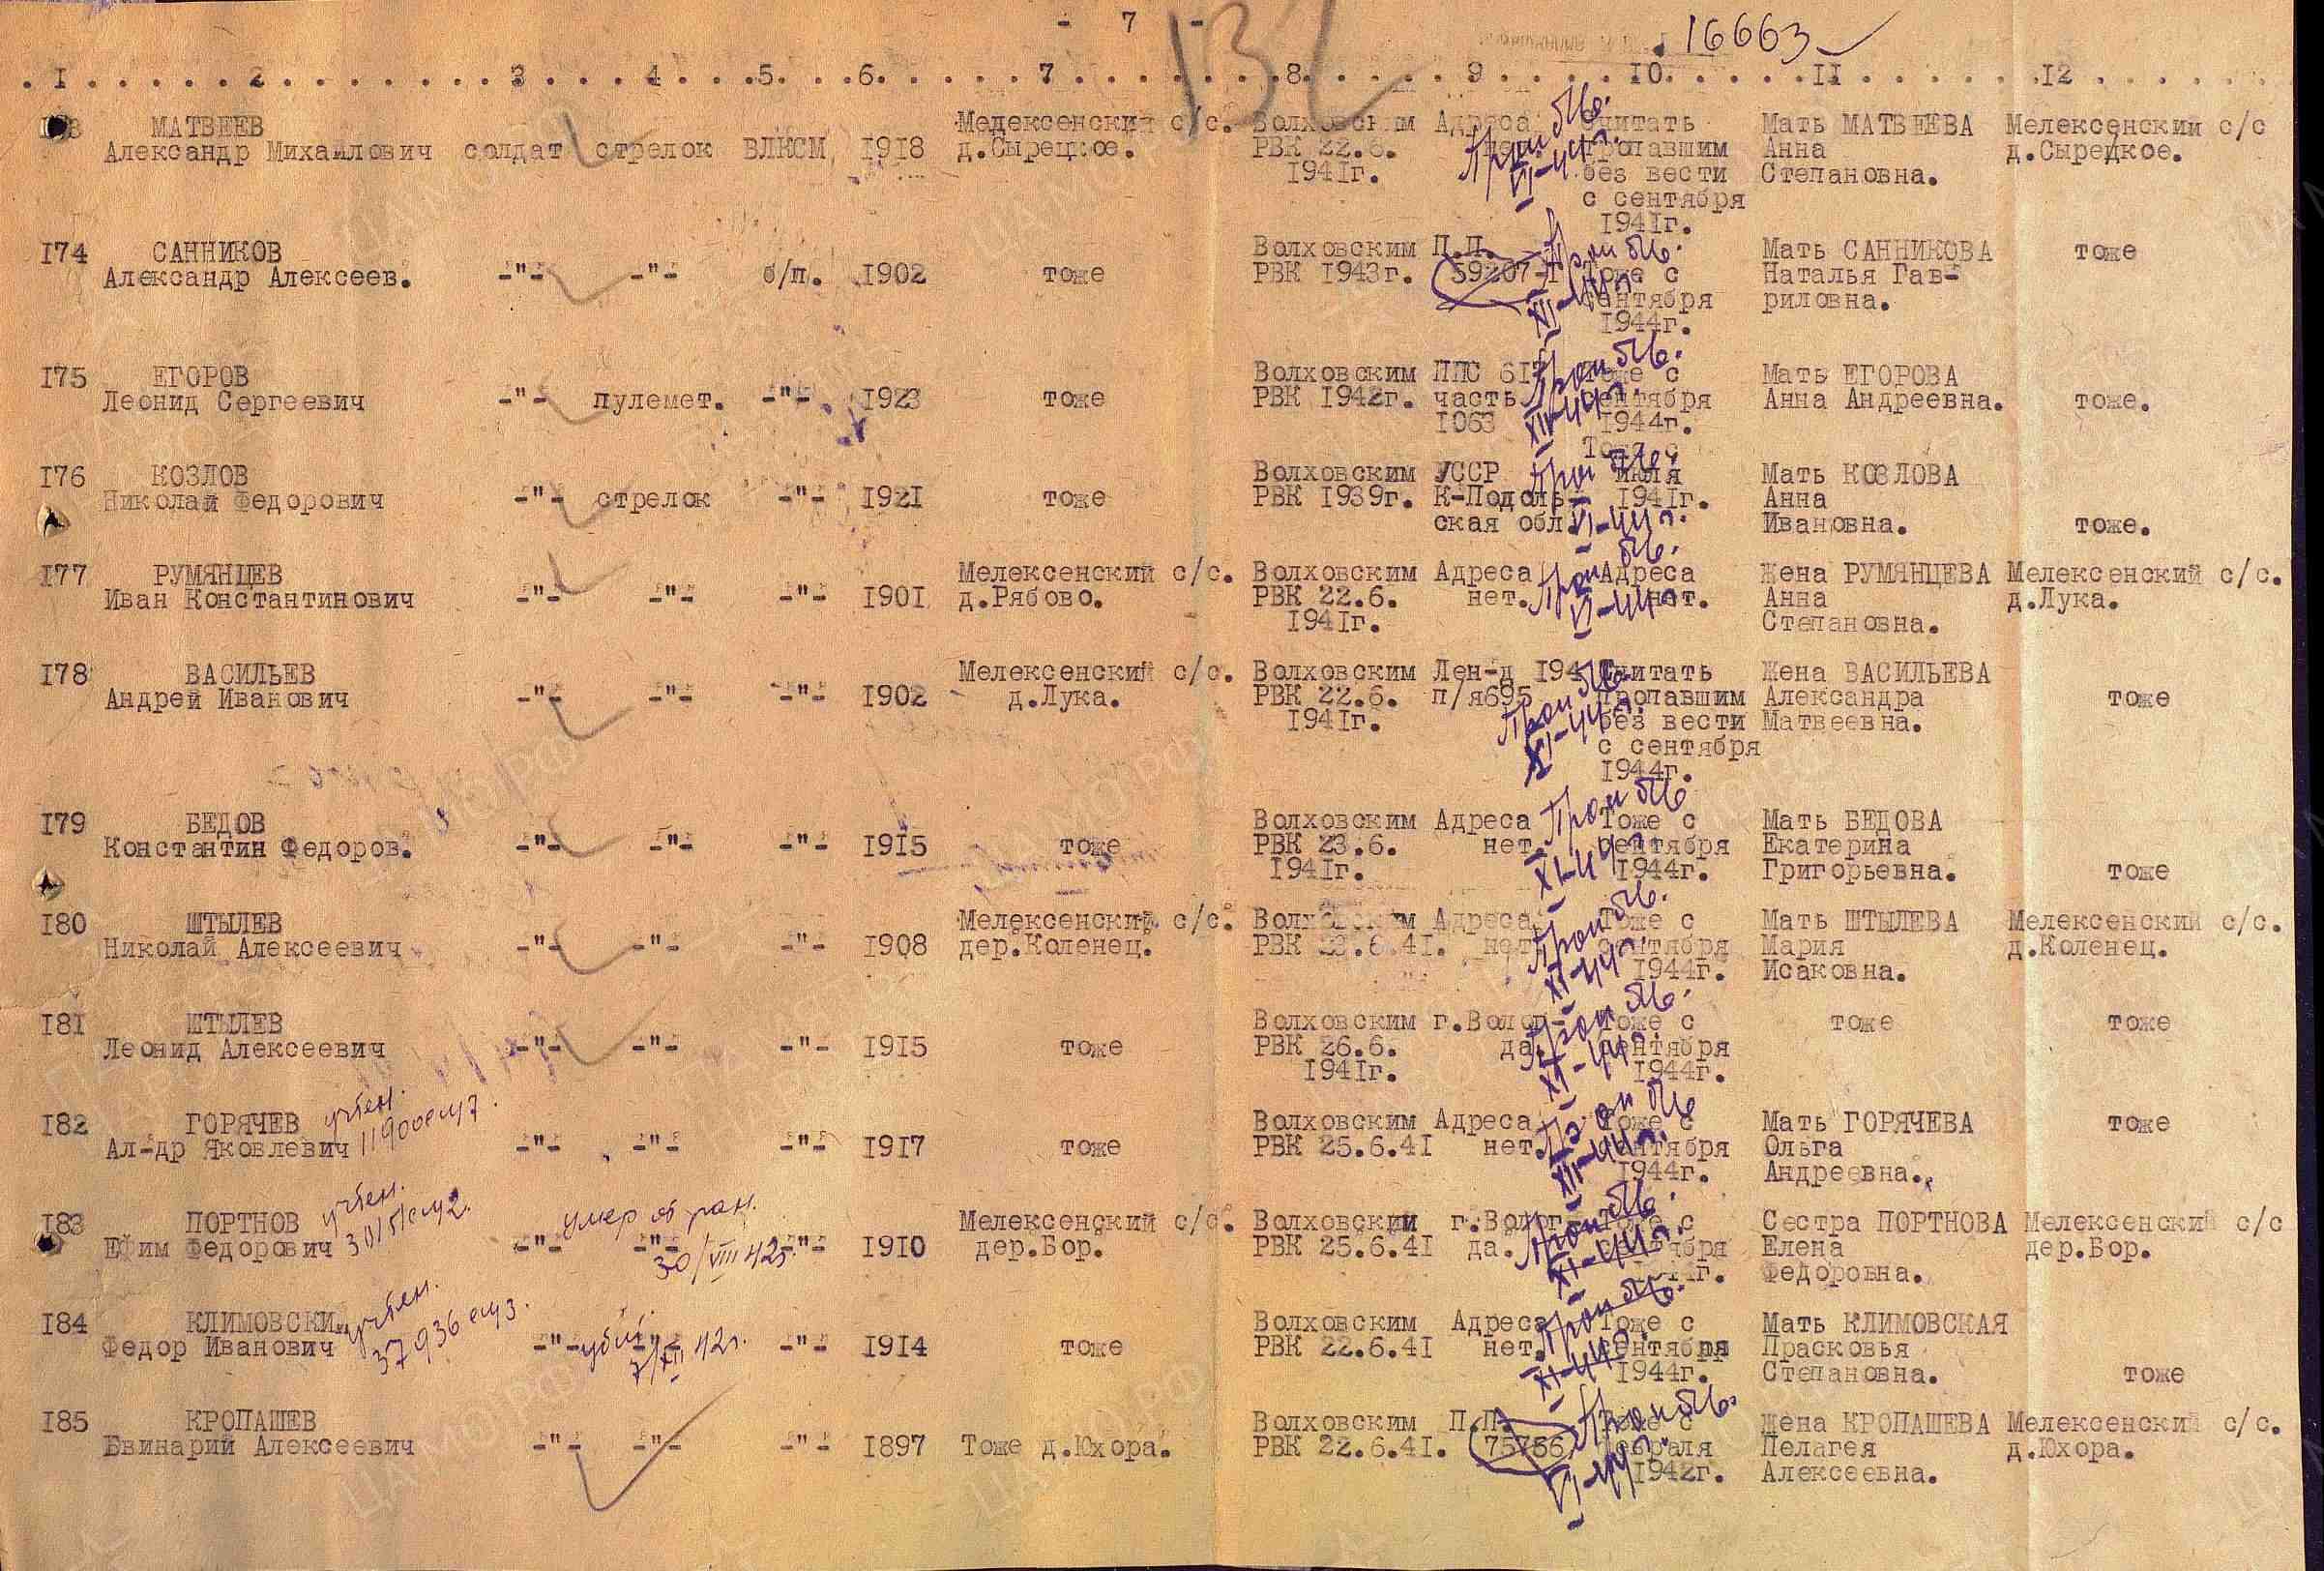 - 7 -
132
16663
1 2 3 4 5 6 7 8 9 10 11 12
МАТВЕЕВ Мелексенский с/с. Волховским Адреса считать Мать МАТВЕЕВА Мелексенский с/с
Александр Михайлович солдат стрелок ВЛКСМ 1918 д.Сырецкое. РВК 22.6. пропавшим Анна д.Сырецкое.
1941г. без вести Степановна.
с сентября
1941г.
174 САННИКОВ Волховским П.П. Мать САННИКОВА тоже
Александр Алексеев. -"- -"- б/п. 1902 тоже РВК 1943г. 59207 Тоже с Наталья Гав-
сентября риловна.
1944г.
175 ЕГОРОВ Волховским ППС 617 Тоже с Мать ЕГОРОВА
Леонид Сергеевич -"- пулемет. -"- 1923 тоже РВК 1942г. часть сентября Анна Андреевна. тоже.
1063 1944г.
Тоже с
176 КОЗЛОВ Волховским УССР июля Мать КОЗЛОВА
Николай Федорович -"- стрелок -"- 1921 тоже РВК 1939г. К-Подоль- 1941г. Анна
ская обл. Ивановна. тоже.
177 РУМЯНЦЕВ Мелексенский с/с. Волховским Адреса Адреса Жена РУМЯНЦЕВА Мелексенский с/с.
Иван Константинович -"- -"- -"- 1901 д.Рябово. РВК 22.6. нет. нет. Анна д.Лука.
1941г. Степановна.
178 ВАСИЛЬЕВ Мелексенский с/с. Волховским Лен-д 194 Считать Жена ВАСИЛЬЕВА
Андрей Иванович -"- -"- -"- 1902 д.Лука. РВК 22.6. п/я695 пропавшим Александра тоже
1941г. без вести Матвеевна.
с сентября
1944г.
179 БЕДОВ Волховским Адреса Тоже с Мать БЕДОВА
Константин Федоров. -"- -"- -"- 1915 тоже РВК 23.6. нет. сентября Екатерина
1941г. 1944г. Григорьевна. тоже
180 ШТЫЛЕВ Мелексенский с/с. Волховским Адреса Тоже с Мать ШТЫЛЕВА Мелексенский с/с.
Николай Алексеевич -"- -"- -"- 1908 дер.Коленец. РВК 23.6.41. нет сентября Мария д.Коленец.
1944г. Исаковна.
181 ШТЫЛЕВ Волховским г.Волог- Тоже с тоже тоже
Леонид Алексеевич -"- -"- -"- 1915 тоже РВК 26.6. да. сентября
1941г. 1944г.
182 ГОРЯЧЕВ учтен. Волховским Адреса Тоже с Мать ГОРЯЧЕВА тоже
Ал-др Яковлевич -"- -"- -"- 1917 тоже РВК 25.6.41 нет. сентября Ольга
1944г. Андреевна.
183 ПОРТНОВ учтен. умер от ран. Мелексенский с/с. Волховский г.Волог- Тоже с Сестра ПОРТНОВА Мелексенский с/с
Ефим Федорович -"- -"- 30/VIII 42г. -"- 1910 дер.Бор. РВК 25.6.41 да. сентября Елена дер.Бор.
Федоровна.
184 КЛИМОВСКИ учтен. Волховским Адреса Тоже с Мать КЛИМОВСКАЯ
Федор Иванович -"- убит. -"- 7/XII 42г. -"- 1914 тоже РВК 22.6.41 нет. сентября Прасковья
1944г. Степановна. тоже
185 КРОПАШЕВ Волховским П.П. Тоже с Жена КРОПАШЕВА Мелексенский с/с.
Евинарий Алексеевич -"- -"- -"- 1897 Тоже д.Юхора. РВК 22.6.41. 75756 февраля Пелагея д.Юхора.
1942г. Алексеевна.